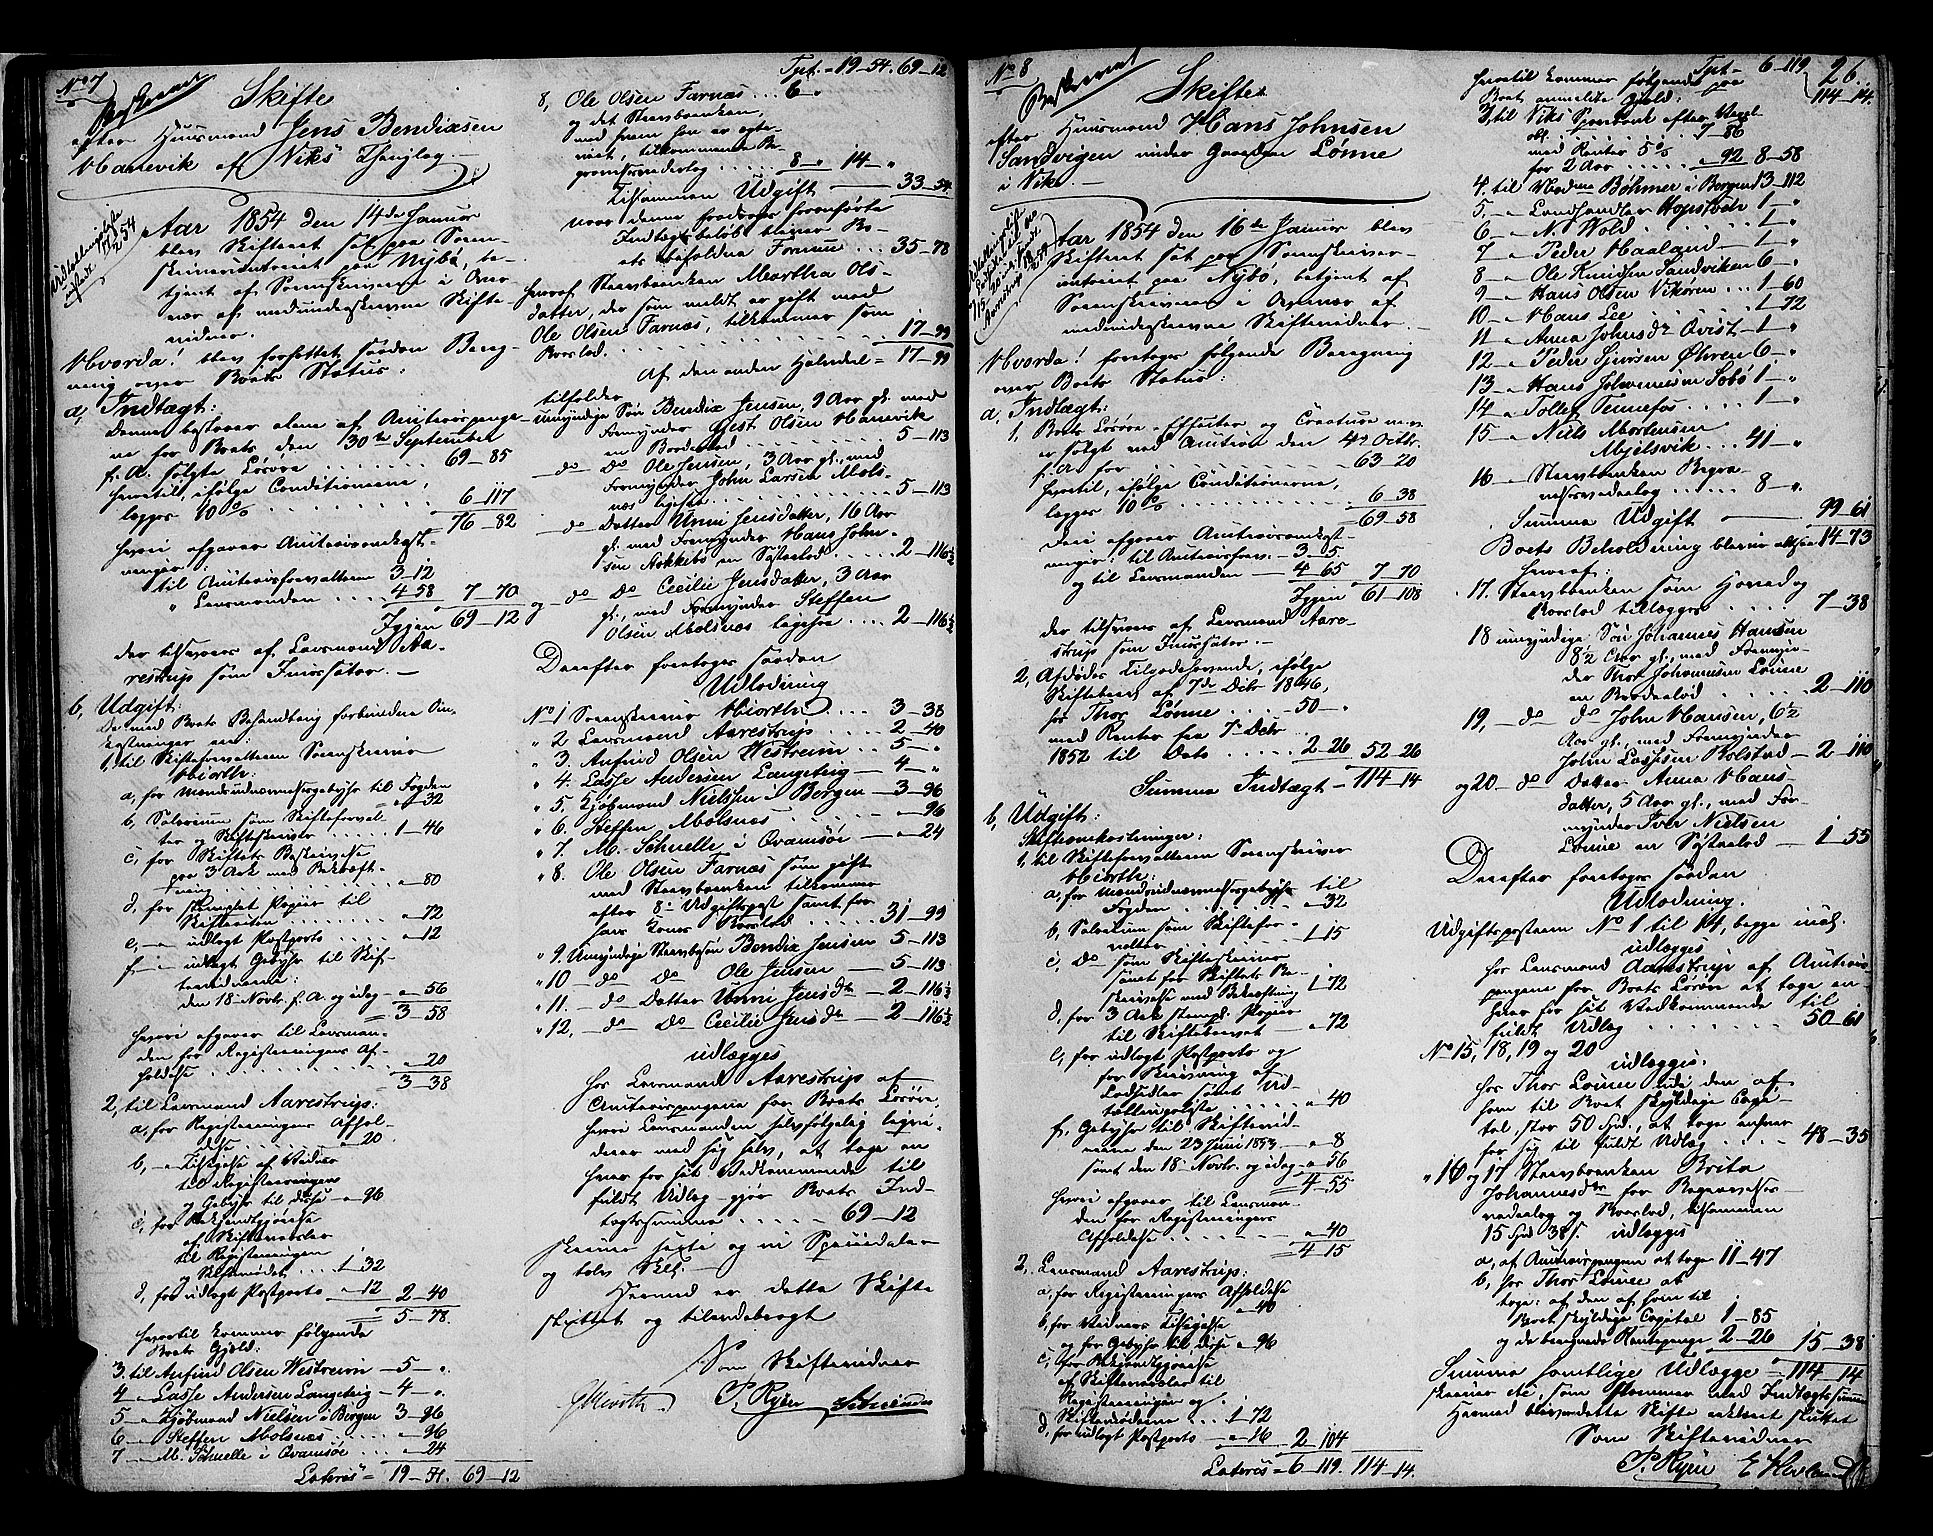 No 7
Beskrevet
Skifte
efter Huusmand Jens Bendixsen
Hanevik af Viks Thinglag
Aar 1854 den 14de Januar
blev Skifteret sat paa Soren-
skrivercontoiret paa Nybø, be-
tjent af Sorenskriveren i Over-
vær af medunderskrevne Skifte-
vidner.
Hvorda! blev forfattet saadan Bereg-
ning over Boets Status:
a, Indtægt:
Denne bestaaer alene af Auctionspenge-
ne for Boets den 30te September
f. A. solgte Løsøre . . . . . . 69_85
hvortil, ifølge Conditionerne,
lægges 10% . . . . . . 6_117
76_82
herfra afgaaer Auctionsomkost-
ninger:
til Auctionsforvalteren 3_12
" Lensmanden . . . . 4_58 7_70
Igjen 69_12
der tilsvares af Lensmand Aa-
restrup som Incassator.
b, Udgift:
De med Boets Behandling forbundne Om-
kostninger ere:
1, til Skifteforvalteren Sorenskriver
Hiorth:
a, for Mandsudnævnelsesgebyhr til Fogden
" _32
b, Salarium som Skifteforval-
ter og Skifteskriver . . . . . 1_46
c, for Skiftets Beskrivelse
paa 3 Ark med Bekræft-
ning . . . . . . " _80
d, for stemplet Papir til
Skifteretten . . . . . . " _72
e, _ " _ udlagt Postporto . . . . " _12
f _ " _ udlagt Gebyhr til Skif-
tevidnerne:
den 18 Novbr. f. A. og idag _ " _56
3_58
herfra afgaaer til Lensman-
den for Registreringens Af-
holdelse . . . . . . " _20
3_38
2, til Lensmand Aarestrup:
a, for Registreringens Afhol-
delse . . . . . . " _20.
b, _ " _ Tilsigelse af Vidner
til Registreringen
og Gebyhr til disse _ " _96
c, for Bekjendtgjørelse
af Skiftesamler
til Registreringen
og Skiftemødet . . . . 1_32
d, for udlagt Postporto _ " _12 2_40
5_78.
hvortil kommer følgende
Boets Gjæld:
3. til Anfind Olsen Westreim _ 5_ ".
4 _ " _ Lasse Andersen Langeteig _ 4_ ".
5 _ " _ Kjøbmand Nielsen i Bergen 3_96
6 _ " _ Steffen Molsnæs . . . . . " _96
7 _ " _ M. Schnelle i Qvamsøe . . . " _24
Lateris = 19_54. 69_12
Tpt. = 19_54. 69_12
8, Ole Olsen Farnæs . . . 6 "
og det Stervboenken,
med hvem han er egte-
viet, tilkommende Be-
gravelsesvederlag . . . . 8_ " 14_ "
Tilsammen Udgift 33_54.
naar denne fradrages foranførte
Indtægtsbeløb bliver Bo-
ets beholdne Formue . . . 35_78
heraf Stervboenken Martha Ols-
datter, der som meldt er gift med
Ole Olsen Farnæs, tilkommer som
Boeslod . . . . . . 17_99
Af den anden Halvdel = 17_99
tilfalder
umyndige Søn Bendix Jensen, 9 Aar gl. med
Formynder Gest. Olsen Hanevik
en Broderlod . . . . . . 5_113
_ do Do Ole Jensen, 3 Aar gl., med
Formynder John Larsen Mols-
næs ligesaa . . . . . . 5_113
_ do Datter Unni Jensdatter, 16 Aar
gl. med Formynder Hans John-
sen Stokkebø en Søsterlod . . . . 2_116½
og _ do Do Cecilie Jensdatter, 3 Aar
gl., med Formynder Steffen
Olsen Molsnæs ligesaa . . . . 2_116½
Derefter foretoges saadan
Udlodning
No 1 Sorenskriver Hiorth . . . . 3_38
" 2 Lensmand Aarestrup . . . . 2_40
" 3. Anfind Olsen Westreim . . 5_ ".
" 4. Lasse Andersen Langeteig _ 4_ "
" 5. Kjøbmand Nielsen i Bergen _ 3_96
" 6. Steffen Molsnæs . . . . . . " _96
" 7. M. Schnelle i Qvamsøe _ " _24
" 8. Ole Olsen Farnæs som gift
med Stervboenken tilkommer
efter 8de Udgiftspost samt for
hans Kones Boeslod . . . . 31_99
" 9. Umyndige Stervbosøn Bendix Jensen 5_113
" 10 _ do _ do Ole Jensen _ 5_113
" 11. _ do Datter Unni Jensdtr _ 2_116½
" 12, _ do _ Do Cecilie Jensdtr _ 2_116½
udlægges
hos Lensmand Aarestrup af
Auctionspengene for Boets Løsøre,
hvori Lensmanden selvfølgelig liqvi-
derer med sig selv, at tage en-
hver for sit Vedkommende til
fuldt Udlæg _ gjør Boets Ind-
tægtssumma . . . . . 69_12
skriver sexti og ni Speciedaler
og tolv Skill.
Hermed er dette Skifte
sluttet og tilendebragt
Som Skiftevidner
Hiorth. P. Ryen
No 8
Beskrevet
Skifte
efter Huusmand Hans Johnsen
Sandvigen under Gaarden Lønne
i Vik.
Aar 1854 den 16de Januar blev
Skifteret sat paa Sorenskriver-
contoiret paa Nybø, betjent af
Sorenskriveren i Overvær af
medunderskrevne Skiftevidner.
Hvorda! foretoges følgende Beregning
over Boets Status:
a, Indtægt:
1, Boets Løsøre _ Effecter og Creature m. v.
er solgt ved Auction den 4de Octbr.
f. A. for . . . . . . 63_20
hvortil, ifølge Conditionerne,
lægges 10% . . . . . . 6_38
69_58
heri afgaaer Auctionsomkost-
ninger: til Auctionsforv. _ 3_5
og til Lensmanden _ 4_65 7_70
Igjen 61_108
der tilsvares af Lensmand Aare-
strup som Incassator.
2, Afdødes Tilgodehavende, ifølge
Skiftebrev af 7de Debr 1846,
hos Thor Lønne . . . . . 50_ "
med Renter fra 7de Debr
1852 til Dato . . . . . 2_26 52_26
Summa Indtægt = 114_14
b, Udgift:
Skifteomkostninger:
1, til Skifteforvalteren Sorenskriver
Hiorth:
a, for Mandsudnævnelsesgebyhr til
Fogden . . . . . . " _32
b, Salarium som Skiftefor-
valter . . . . . . 1_15
c, Do som Skifteskriver
samt for Skiftets Be-
skrivelse med Bekræftning 1_72
d, for 3 Ark stempl. Papir
til Skiftebrevet _ " _72
e, for udlagt Postporto og
for Skrivning af
Lodsedler samt Ud-
tællingsliste . . . . . " _40
f, Gebyhr til Skiftevid-
nerne den 23 Juni 1853 _ " _8
samt den 18 Novbr. og idag _ " _56
4_55
herfra afgaaer til Lensman-
den for Registreringens
Afholdelse . . . . . . " _40
4_15
2, Lensmand Aarestrup:
a, for Registreringens Afholdelse
" _40
b, for Vidners Tilsigelse
og for Gebyhr til disse " _96
c, for Bekjendtgjørelse
af Skiftesamler til
Registreringen og
Skiftemøderne . . . 1_72
d, for udlagt Postporto _ " _16 2_104
Lateris = 6_119. 114_14.
26.
Tpt = 6_119 114_14.
hvortil kommer følgende paa
Boet anmeldte Gjæld:
3, til Viks Sparebank efter Vexel-
obl. . . . . . . 7_86
med Renter 5%
for 2 Aar . . . . . " _92 8_58
4. til Madme Bøhmer i Bergen 13_112
5, _ " _ Landhandler Hopstock 1_ "
6 _ " _ N. Wold . . . . 1_ "
7 _ " _ Peder Haaland _ 1_ "
8 _ " _ Ole Knudsen Sandviken 6_ "
9 _ " _ Hans Olsen Vikøren . . 1_60
10 _ " _ Hans Lee . . . . . 1_72
11 _ " _ Anna Johnsdr Qvist _ 1_ "
12 _ " _ Peder Sjursen Øhren 6_ "
13 _ " _ Hans Johannesen Sobø 1_ "
14 _ " _ Tollef Tennefos . . . . 1_ "
15 _ " _ Niels Mortensen
Mjelsvik . . . 41_ "
16 _ " _ Stervboenken Begra-
velsesvederlag . . . . . 8_ ".
Summa Udgift 99_61
Boets Beholdning bliver altsaa 14_73
hvoraf:
17. Stervboenken som Hoved og
Boeslod tillægges . . . . 7_38
18 umyndige Søn Johannes Hansen
8½ Aar gl., med Formyn-
der Thor Johannesen Lønne
en Broderlod . . . . . 2_110
19, _ do _ do John Hansen, 6½
Aar gl., med Formynder
John Lassesen Holstad _ 2_110
og 20 _ do _ Datter Anna Hans-
datter, 5 Aar gl., med For-
mynder Iver Nielsen
Lønne en Søsterlod _ 1_55
Derefter foretoges saadan
Udlodning.
Udgiftsposterne No 1 til 14, begge incl.
udlægges
hos Lensmand Aarestrup af Auctions-
pengene for Boets Løsøre at tage en-
hver for sit Vedkommende til
fuldt Udlæg . . . . . . 50_61
No 15, 18, 19 og 20
udlægges:
hos Thor Lønne udi den af
ham til Boet skyldige Capi-
tal, stor 50 Spd., at tage enhver
for sig til fuldt Udlæg . . . . 48_35
" 16 og 17 Stervboenken Brita
Johannesdtr for Begravelses-
vederlag og Boeslod, tilsammen
15 Spd 38 s. udlægges
a, af Auctionspengene at tage 11_47
b, hos Thor Lønne at
tage: af den af ham til
Boet skyldige Capital 1_85
og de beregnede Rentepenge 2_26 15_38
Summa samtlige Udlægge = 114_14
skriver etc., som stemmer med Indtægtssummen
Hermed blev dette Skifte erklæret sluttet
Som Skiftevidner
P. Ryen